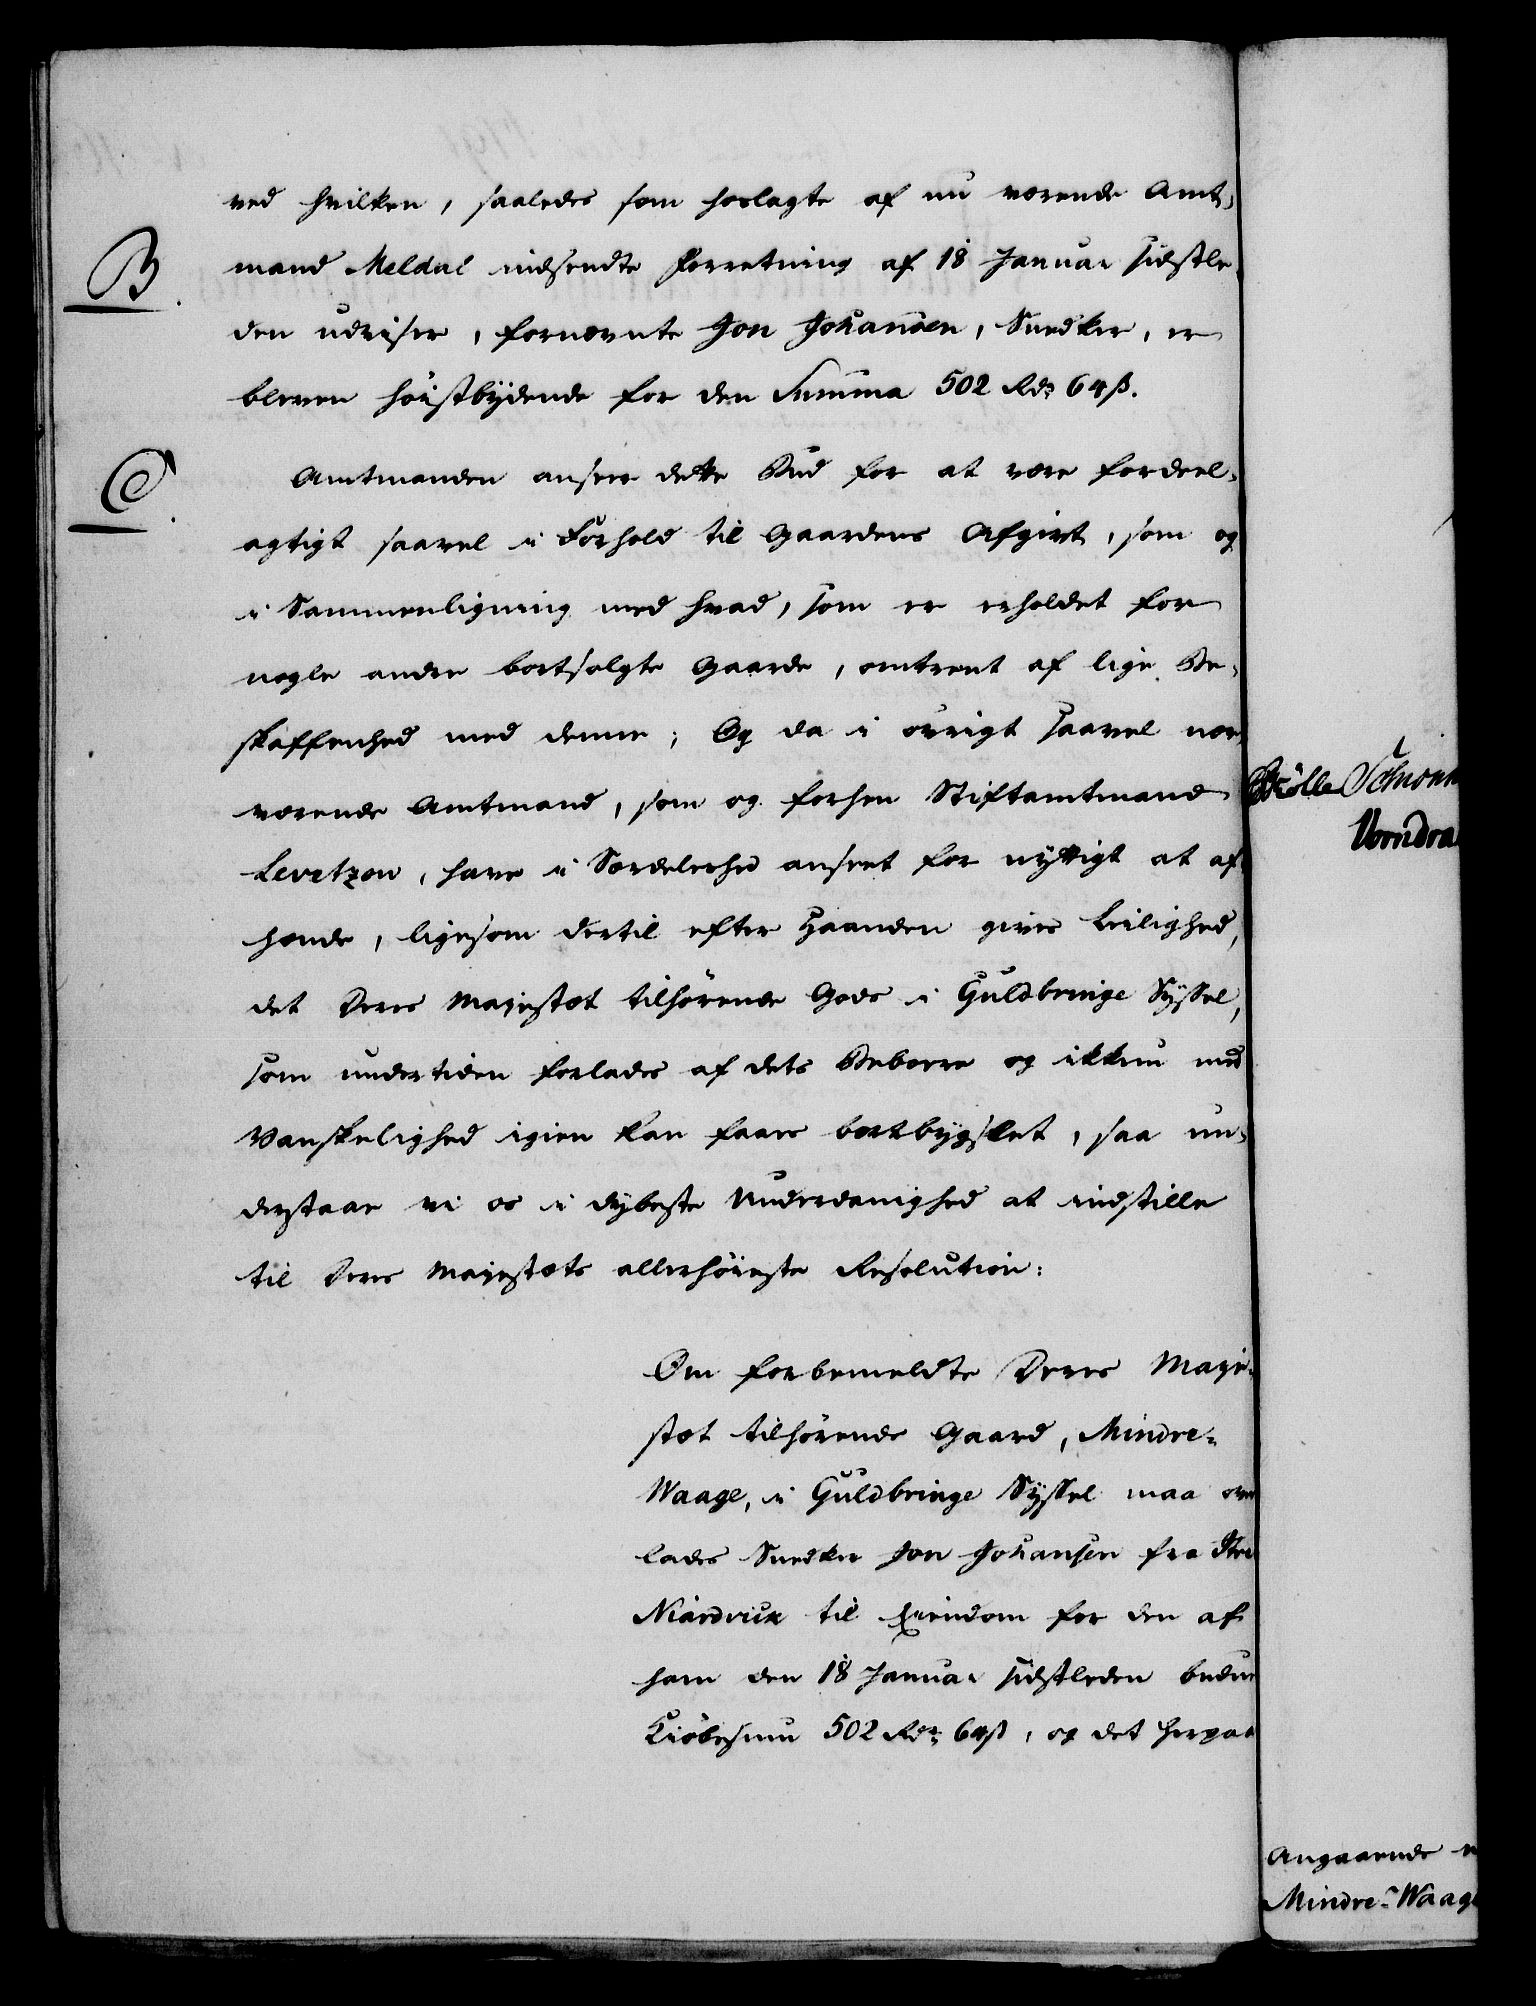 ved hvilken, saaledes som hoslagte af nu værende Amt-
B.
mand Meldal indsendte Forretning af 18 Januar sidstle-
den udviser, fornævnte Jon Johansen, Snedker, er
bleven høistbydende for den Summa 502 Rdr 64 ß.
C.
Amtmanden anseer dette Bud for at være fordeel-
agtigt saavel i Forhold til Gaardens Afgivt, som og
i Sammenligning med hvad, som er erholdet for
nogle andre bortsolgte Gaarde, omtrent af lige Be-
skaffenhed med denne; Og da i øvrigt saavel nær-
værende Amtmand, som og forhen Stiftamtmand
Levetzow, have i Særdeleshed anseet for nyttigt at af-
hænde, ligesom dertil efter Haanden gives Leilighed,
det Deres Majestæt tilhørende Gods i Guldbringe Syssel,
som undertiden forlades af dets Beboere og ikkun med
Vanskelighed igien kan faaes bortbygslet, saa un-
derstaae vi os i dybeste Underdanighed at indstille
til Deres Majestæts allerhøieste Resolution:
Om forbemeldte Deres Maje-
stæt tilhørende Gaard, Mindre-
Waage, i Guldbringe Syssel maa over
lades Snedker Jon Johansen fra
Niardvik til Eiendom for den af
ham den 18 Januar sidstleden budne
Kiøbesum 502 Rdr 64 ß, og det herpaa
Angaaende
Mindre-Waage